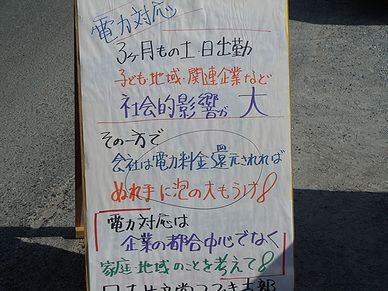 電力対応
3ヶ月もの土・日出勤
子ども・地域・関連企業など
社会的影響が 大
その一方で
会社は電力料金還元されれば
ぬれ手に泡の大もうけ
電力対応は
企業の都合中心でなく
家庭・地域のことを考えて